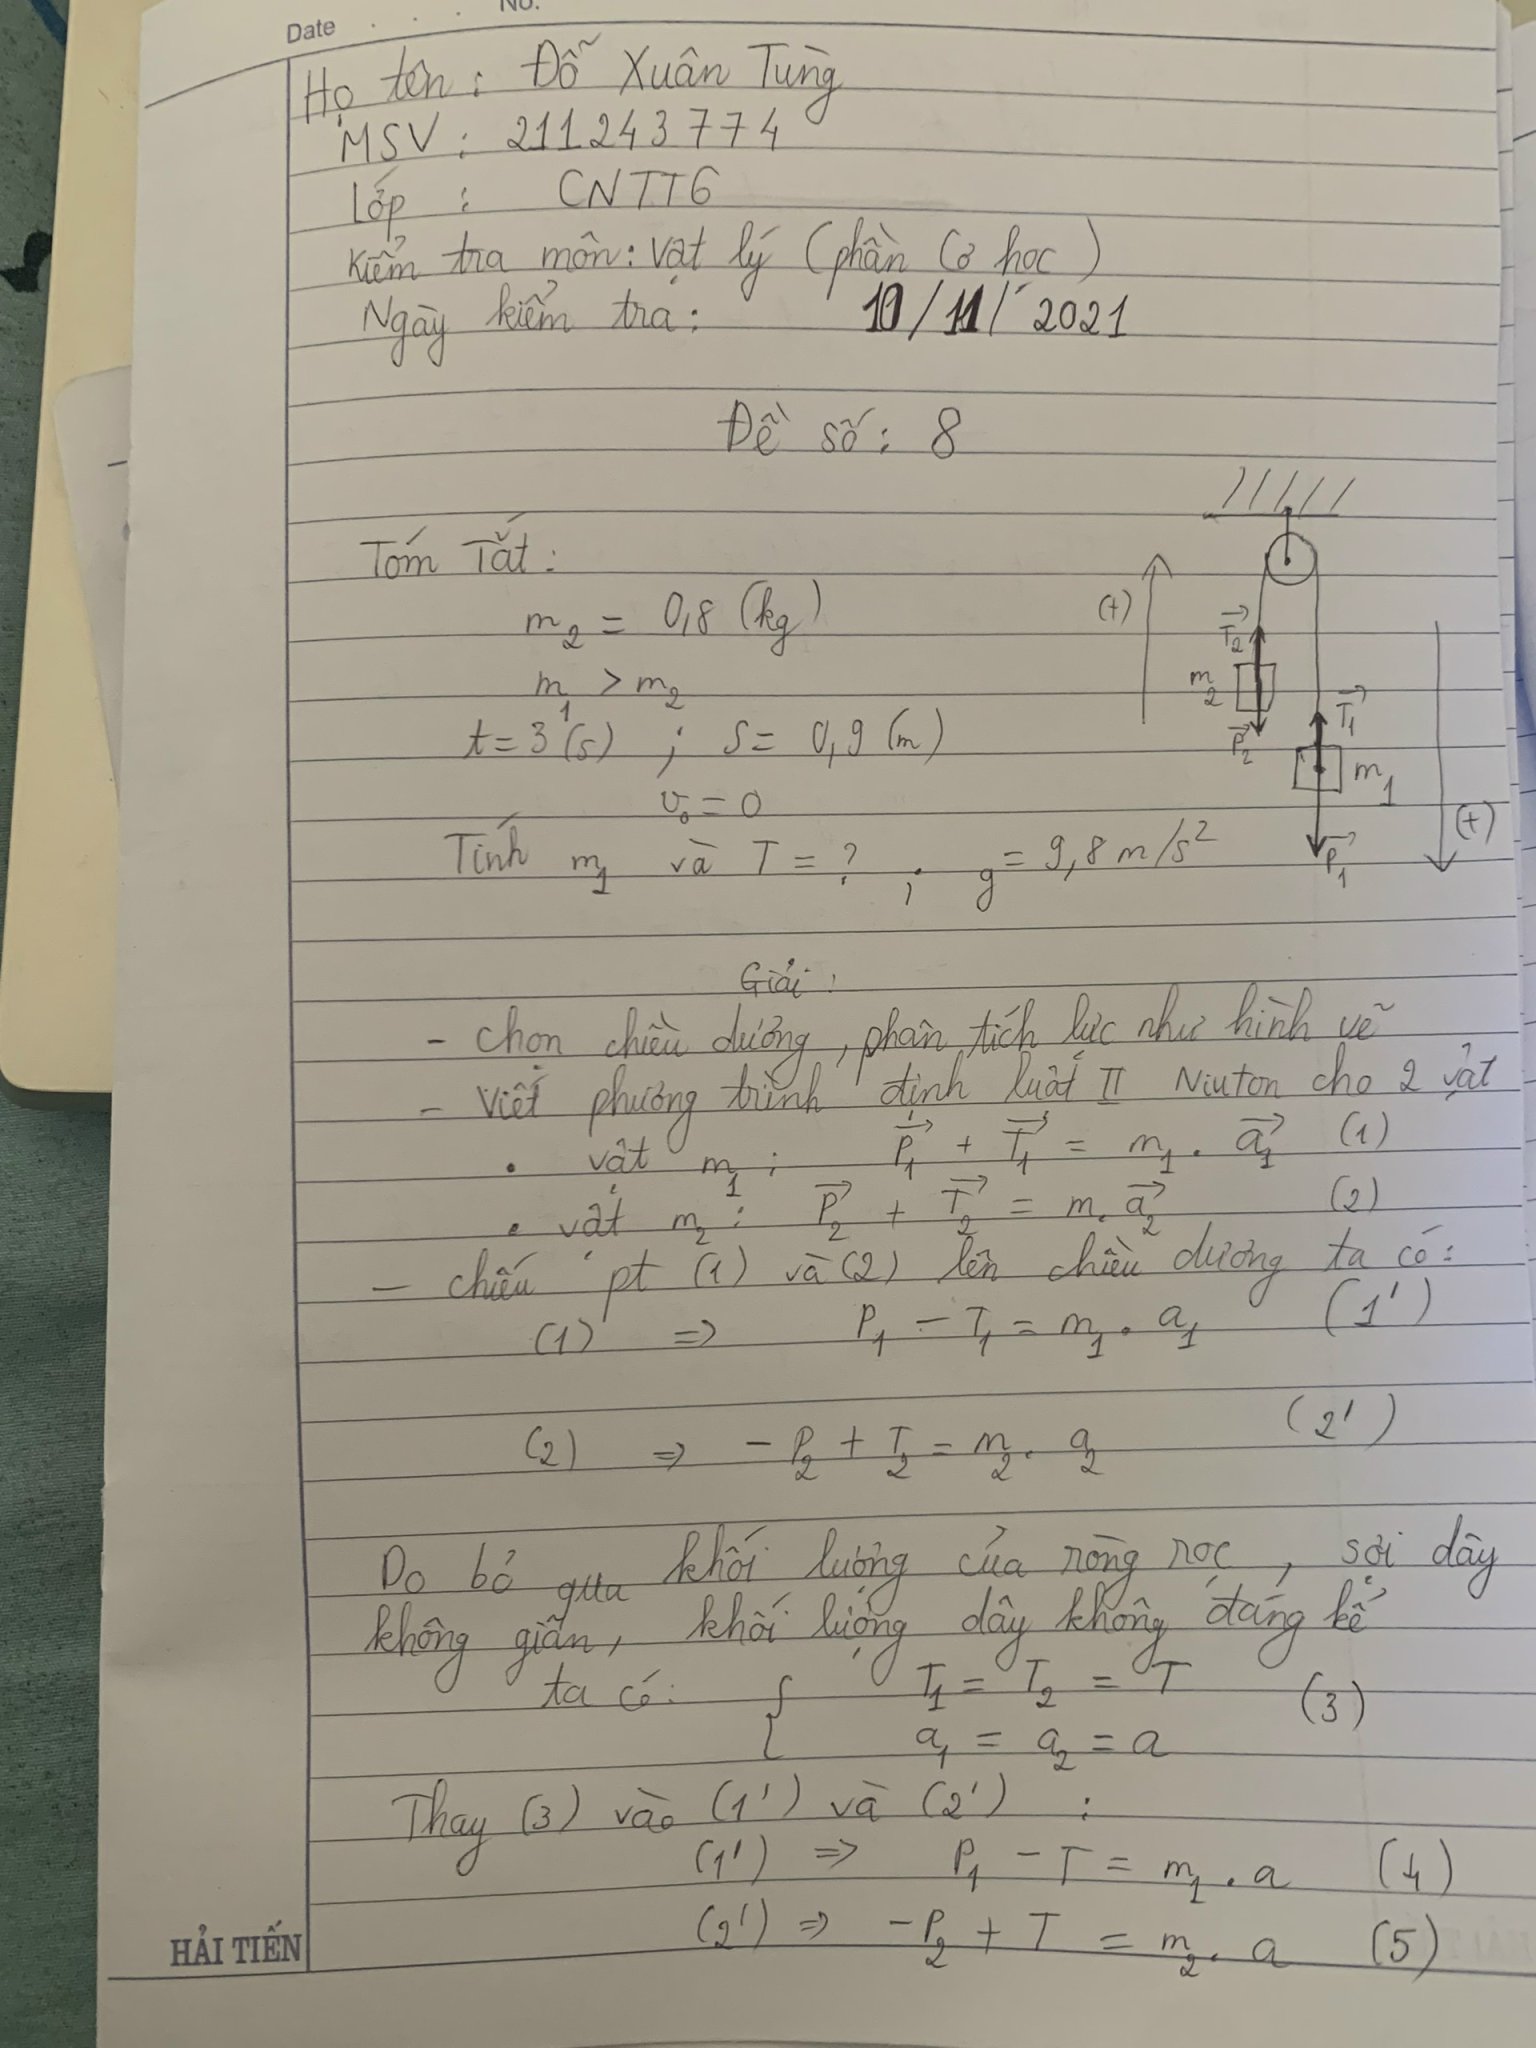 Date . . . No.
Họ tên : Đỗ Xuân Tùng
MSV : 211243774
Lớp : CNTT6
Kiểm tra môn: Vật lý (phần Cơ học)
Ngày kiểm tra: 10/11/2021
Đề số: 8
Tóm Tắt:
m₂ = 0,8 (kg)
m₁ > m₂
t = 3 (s) ; S = 0,9 (m)
v₀ = 0
Tính m₁ và T = ? ; g = 9,8 m/s²
(+)
T₂
m₂
P₂
T₁
m₁
P₁
(+)
Giải :
- Chọn chiều dương, phân tích lực như hình vẽ
- Viết phương trình định luật II Niuton cho 2 vật
• vật m₁ : P₁ + T₁ = m₁ . a₁ (1)
• vật m₂ : P₂ + T₂ = m. a₂ (2)
- chiếu pt (1) và (2) lên chiều dương ta có:
(1) => P₁ - T₁ = m₁ . a₁ (1')
(2) => - P₂ + T₂ = m₂ . a₂ (2')
Do bỏ qua khối lượng của ròng rọc, sợi dây
không giãn, khối lượng dây không đáng kể
ta có: { T₁ = T₂ = T (3)
a₁ = a₂ = a
Thay (3) vào (1') và (2') :
(1') => P₁ - T = m₁ . a (4)
(2') => -P₂ + T = m₂ . a (5)
HẢI TIẾN